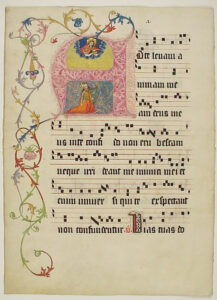 Ad te leuaui a
nimam me
am deus me
us in te confido non erubescam
neque irrideant me inimici mei et
enim uniuersi qui te expectant
non confundentur Vias tuas do